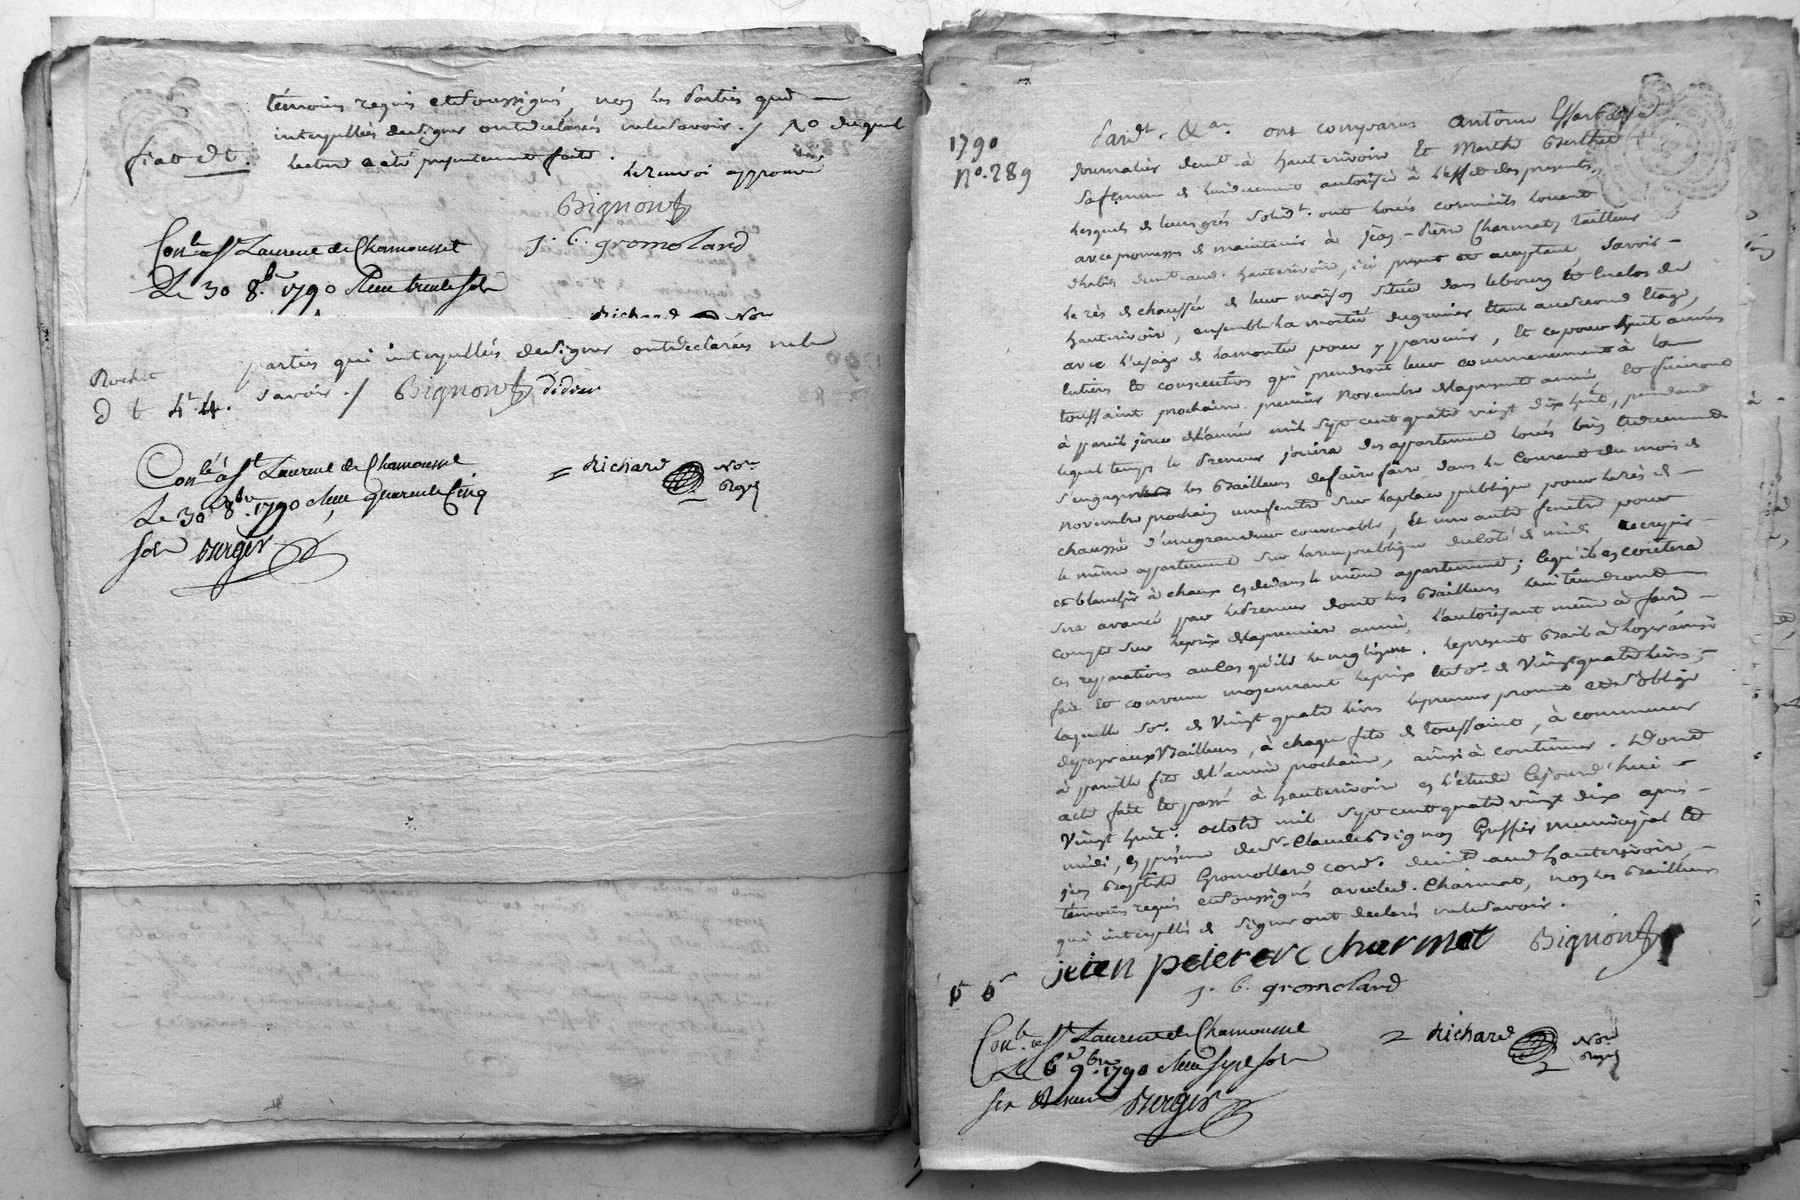 témoins requis et soussignés, non les parties qui
interpellées de signer ont déclarés ne le savoir. / No duquel
lecture a été présentement faite.
le renvoi approuvé
Bignon
J. B. gromoland
Con.lé à St Laurent de Chamousset
Le 30 8.bre 1790 Reçu trente sols
Richard Nore
parties qui interpellés de signer ont déclarés ne le
savoir. / Bignon Didier
D t 4 4.
Conlé à St Laurent de Chamousset
Le 30 8.bre 1790 Reçu quarente cinq
sols Berger
= Richard Nore
Royal
1790
No. 289
Pardt. &a. ont comparus Antoine
journalier demt. à hauterivoire et Marthe Berthet
sa femme de lui duement autorisée à l'effet des présentes,
lesquels de leurs grés solidt. ont loués et commis louent
avec promesses de maintenir à Jean-Pierre Charmat, tailleur
d'habits demt. aud. hauterivoire, ici présent et acceptant, savoir -
le rès de chaussée de leur maison située dans le bourg et enclos de
hauterivoire, ensemble la moitié du grenier étant au second étage,
avec l'usage de la montée pour y parvenir, et ce pour huit années
entières et consécutives qui prendront leur commencement à la
toussaint prochaine premier novembre de la présente année et finiront
à pareil jour de l'année mil sept cent quatre vingt dix huit, pendant
lequel temps le preneur jouira des appartement loués
s'engageant les Bailleurs de faire faire dans le courant du mois de
novembre prochain une fenêtre sur la place publique pour le rès de -
chaussée d'une grandeur convenable, et une autre fenêtre pour
le même appartement sur la rue publique du côté de midi, recrepir -
et blanchir à chaux en dedans le même appartement; ce qu'il en coutera
sera avancé par le preneur dont les Bailleurs lui tiendront
compte sur le prix de la première année, l'autorisant même à faire -
ces réparations au cas qu'ils le négligent. le présent Bail à loyer ainsi
fait et convenu moyennant le prix et so. de Vingt quatre livres, -
laquelle so. de Vingt quatre livres le preneur promet et s'oblige
de payer aux Bailleurs, à chaque fête de toussaint, à commencer
à pareille fête de l'année prochaine, ainsi à continuer. Dont
acte fait et passé à hauterivoire en l'étude cejourd'hui -
Vingt huit octobre mil sept cent quatre vingt dix après -
midi, en présence de sr. Claude Bignon Greffier municipal et
jean Baptiste Gromolland cord. demt. aud. hauterivoire, -
témoins requis et soussignés avec led. Charmat, non les Bailleurs
qui interpellés de signer ont déclarés ne le savoir.
jeien peierere charmat Bignon
J. B. gromoland
Conlé à St Laurent de Chamousset
Le 6 9.bre 1790 Reçu sept sols
six deniers Berger
= Richard Nore
Royal